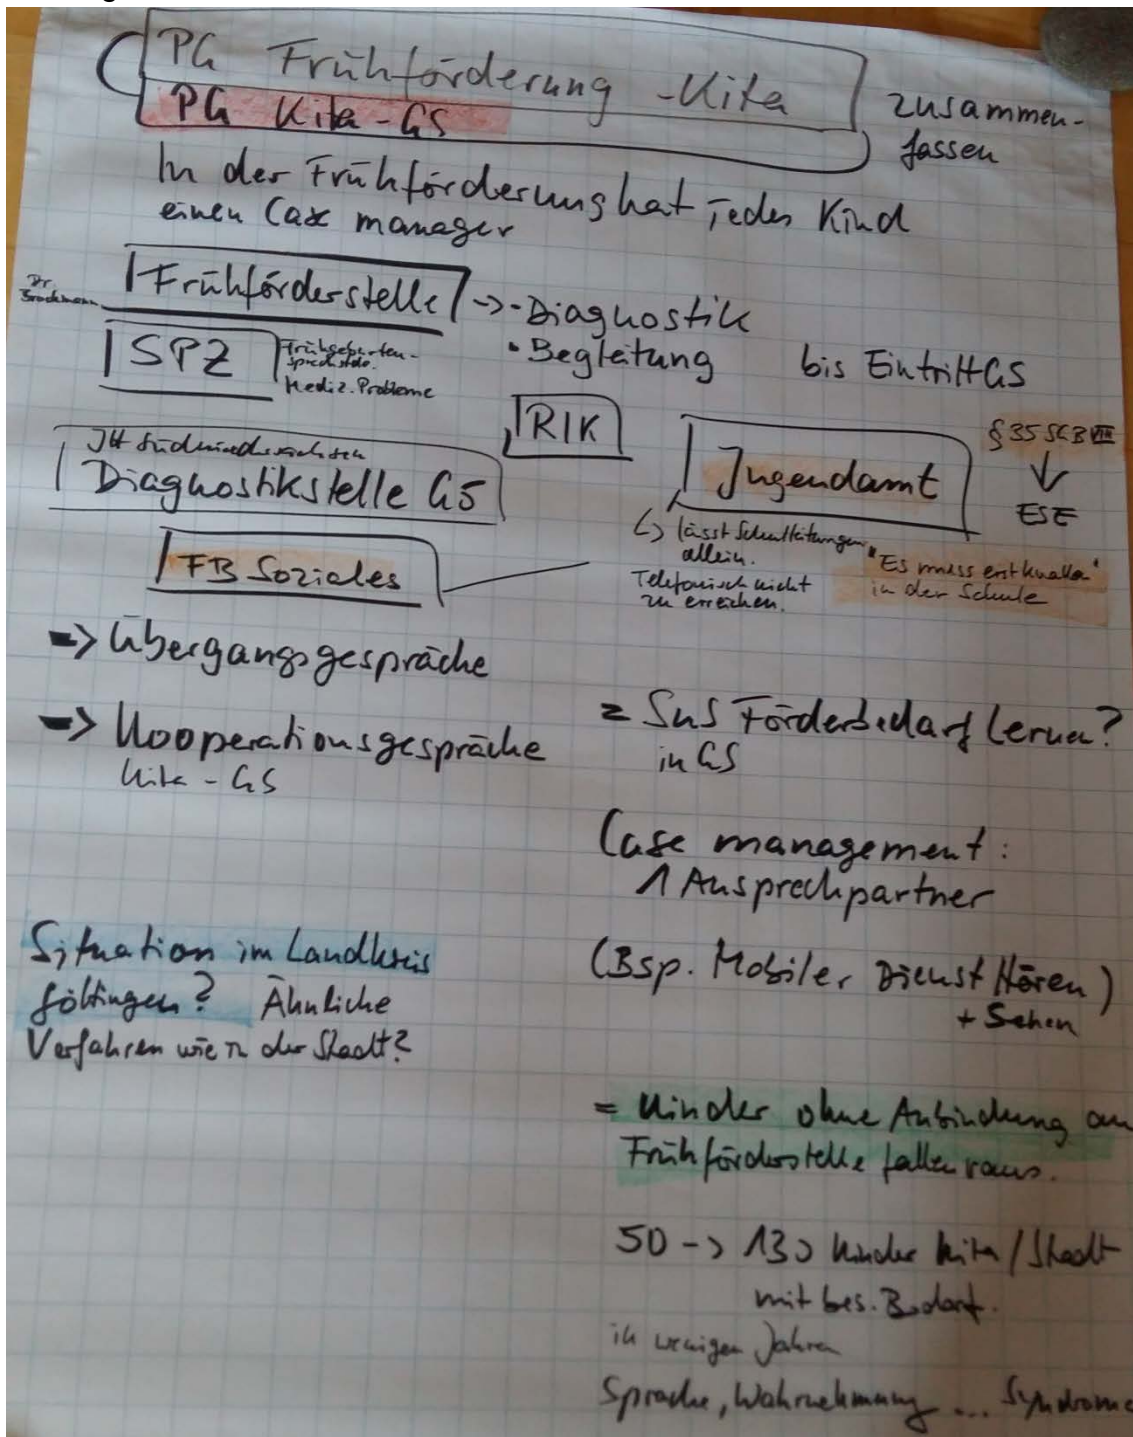 PG Frühförderung - Kita
PG Kita - GS
zusammen-
fassen
In der Frühförderung hat jedes Kind
einen Case manager
Dr.
Brockmann
Frühförderstelle -> · Diagnostik
· Begleitung bis Eintritt GS
SPZ
Frühgeborten-
sprechstde.
Mediz. Probleme
RIK
JH Südniedersachsen
Diagnostikstelle GÖ
Jugendamt
§ 35 SGB VIII
↓
ESE
↳ lässt Schulleitungen
allein.
Telefonisch nicht
zu erreichen.
"Es muss erst knallen"
in der Schule
FB Soziales
-> Übergangsgespräche
-> Kooperationsgespräche
Kita - GS
= SuS Förderbedarf Lernen?
in GS
Case management:
1 Ansprechpartner
(Bsp. Mobiler Dienst Hören)
+ Sehen
Situation im Landkreis
Göttingen? Ähnliche
Verfahren wie in der Stadt?
= Kinder ohne Anbindung an
Frühförderstelle fallen raus.
50 -> 130 Kinder Kita / Stadt
mit bes. Bedarf.
in wenigen Jahren
Sprache, Wahrnehmung ... Syndrome